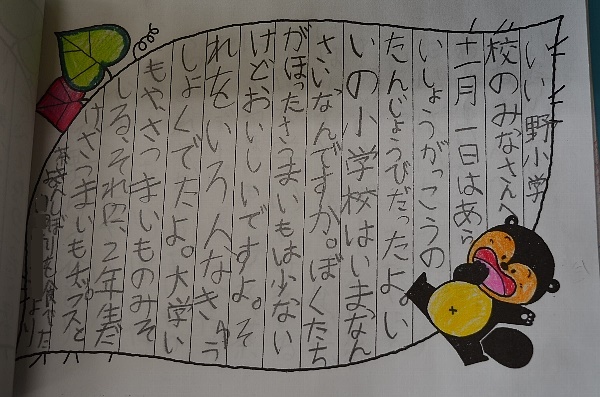 いい野小学
校のみなさんへ
十一月一日はあら
いしょうがっこうの
たんじょうびだったよ。い
いの小学校はいまなん
さいなんですか。ぼくたち
がほったさつまいもは少ない
けどおいしいですよ。そ
れをいろんなきゅう
しょくでたよ。大学い
もや、さつまいものみそ
しる、それに、2年生だ
けさつまいもチップスと
しぼりを食べた
より